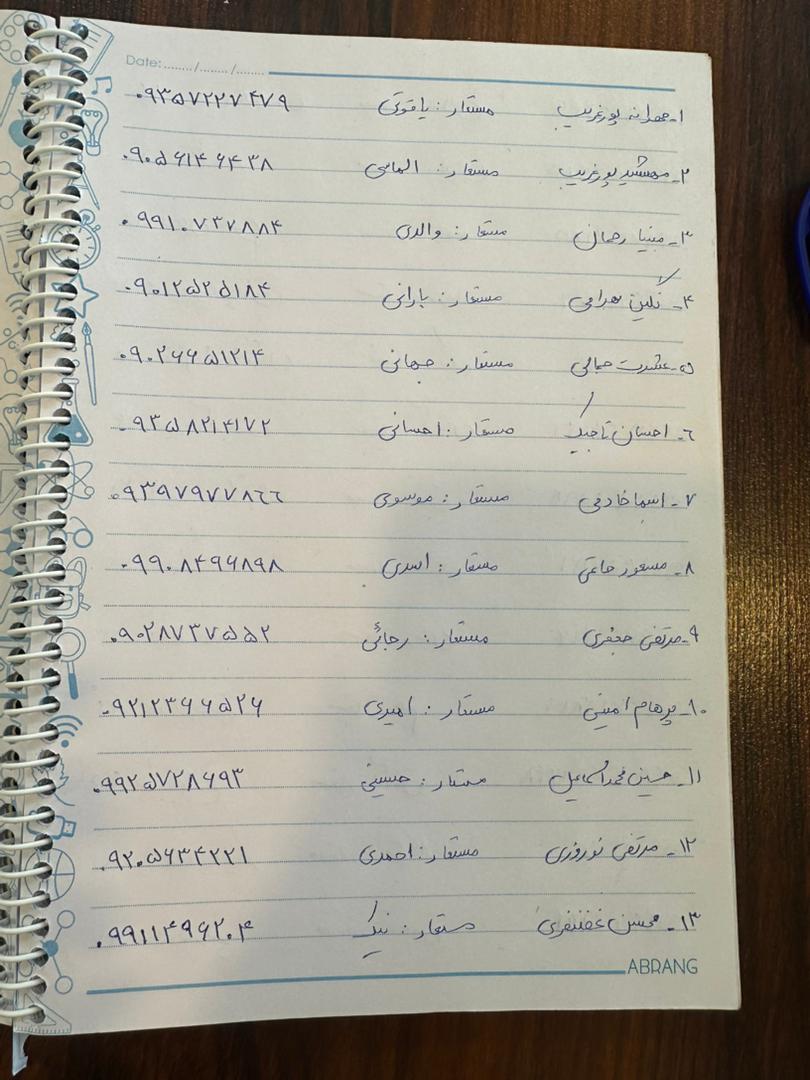 Date: ......../......../........
۱- مهرانه پورغریب مستعار: یاقوتی ۰۹۳۵۷۲۲۷۴۷۹
۲- مهشید پورغریب مستعار: الماسی ۰۹۰۵۶۱۴۶۴۳۸
۳- مبینا رحمانی مستعار: والدی ۰۹۹۱۰۷۳۷۸۸۴
۴- نگین بهرامی مستعار: بارانی ۰۹۰۱۲۵۲۵۱۸۴
۵- عشرت جمالی مستعار: جهانی ۰۹۰۲۶۶۵۱۲۱۴
۶- احسان تاجیک مستعار: احسانی ۰۹۳۵۸۲۱۴۱۷۲
۷- اسما خادمی مستعار: موسوی ۰۹۳۹۷۹۷۷۸۶۶
۸- مسعود حاتمی مستعار: اسدی ۰۹۹۰۸۴۹۶۸۹۸
۹- مرتضی جعفری مستعار: رجائی ۰۹۰۲۸۷۳۷۵۵۲
۱۰- پرهام امینی مستعار: امیدی ۰۹۲۱۲۳۶۶۵۲۶
۱۱- حسین محمداسماعیل مستعار: حسینی ۰۹۹۲۵۷۲۸۶۹۳
۱۲- مرتضی نوروزی مستعار: احمدی ۰۹۲۰۵۶۳۴۲۲۱
۱۳- محسن غضنفری مستعار: نیک ۰۹۹۱۱۴۹۶۲۰۴
ABRANG